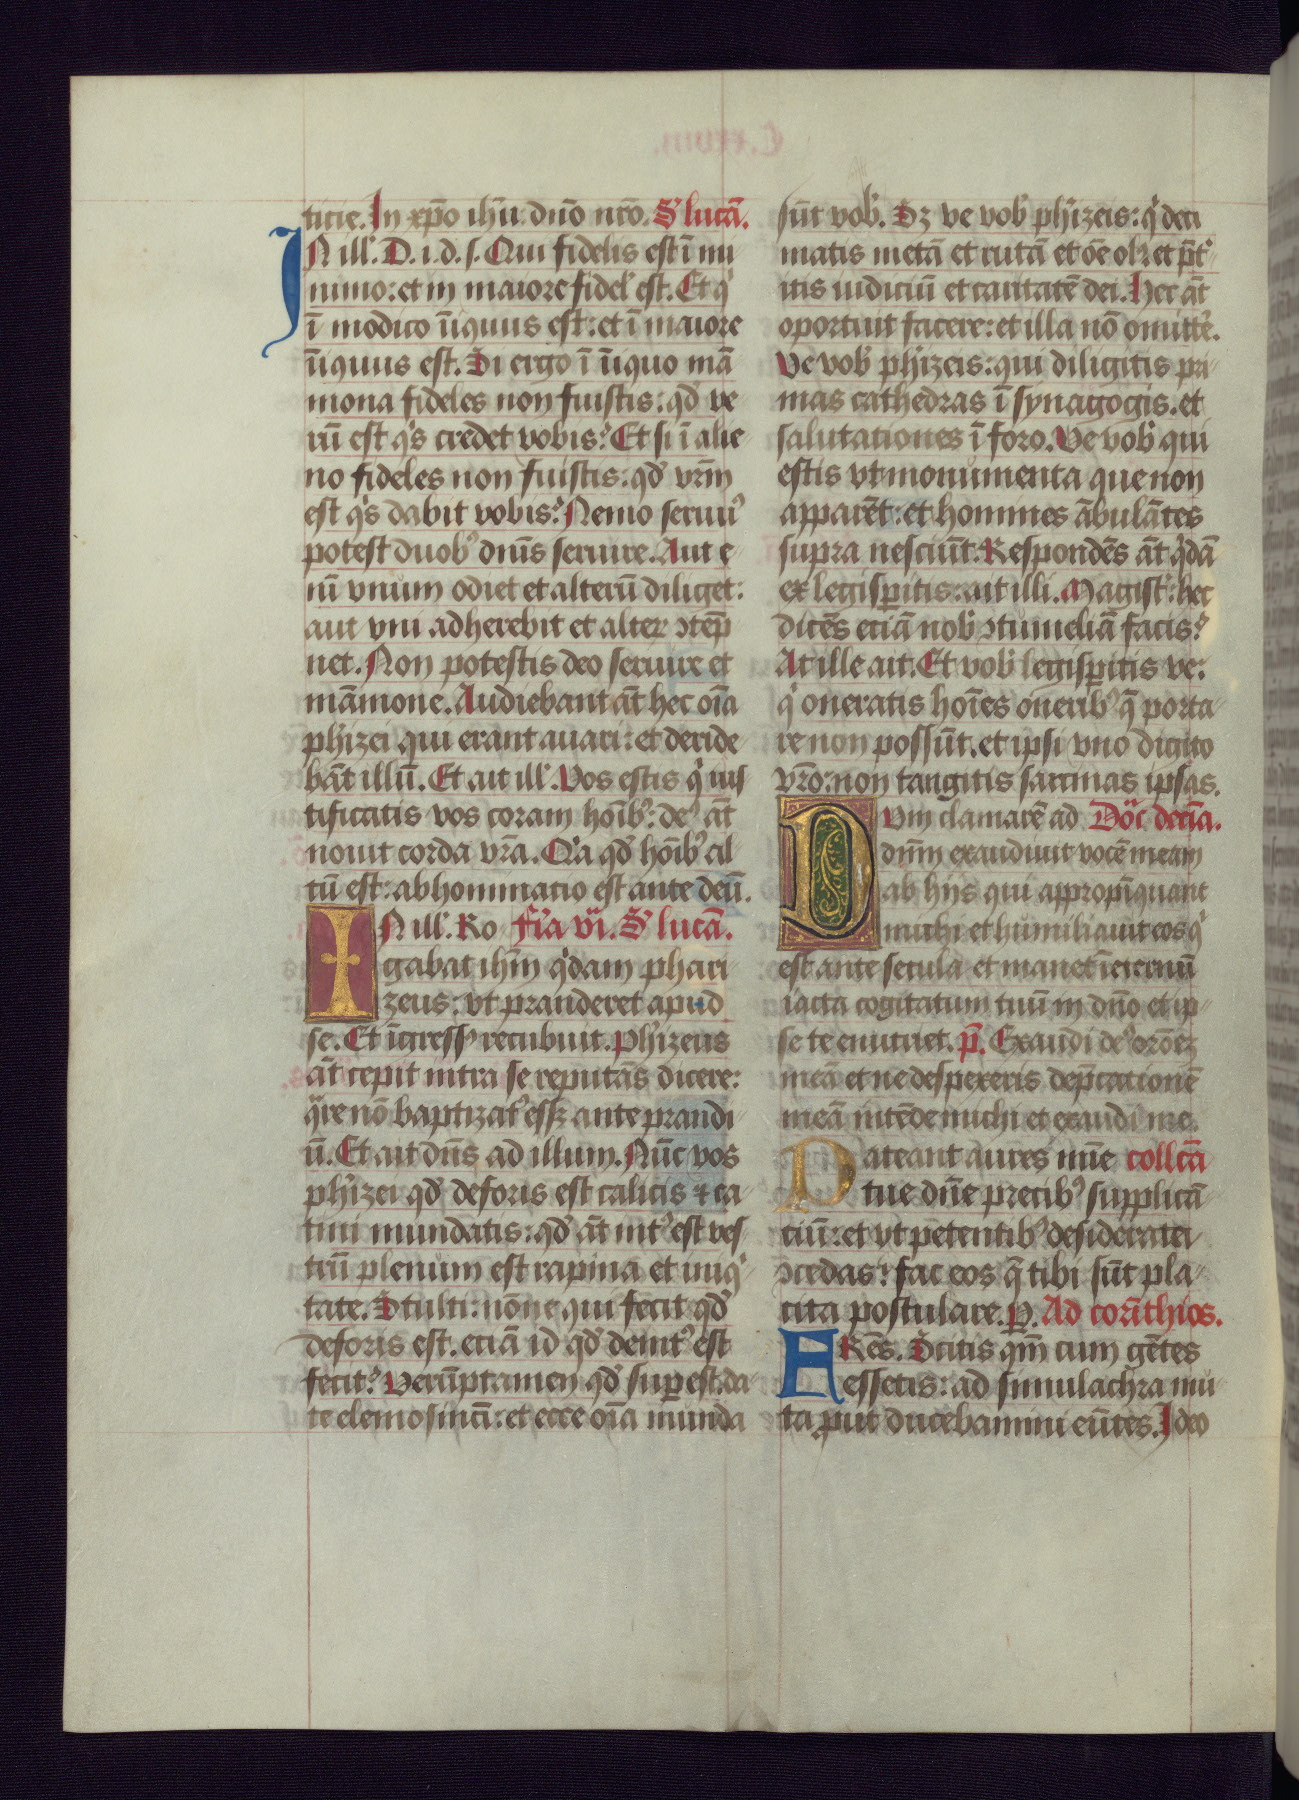 ticie. In xp̄o ih̄u dn̄o nr̄o. S' lucā.
IN ill'. D. i. d. s. Qui fidelis est ī mi
nimo: et in maiore fidel' est. Et q'
ī modico īiquus est: et ī maiore
īiquus est. Si ergo ī īiquo mā
mona fideles non fuistis: qd' ve
rū est q's credet vobis? Et si ī alie
no fideles non fuistis: qd' vr̄m
est q's dabit vobis? Nemo seruu'
potest duob' dn̄is seruire. Aut e
nī vnum odiet et alterū diliget:
aut vni adherebit et alter ↄtēp
net. Non potestis deo seruire et
māmone. Audiebant āt hec oīa
ph'izei qui erant auari: et deride
bāt illū. Et ait ill'. Vos estis q' ius
tificatis vos coram hoīb': de' āt
nouit corda vr̄a. Q'a qd' hoīb' al
tū est: abhominatio est ante deū.
IN ill'. Ro fr̄ia vi. S' lucā.
gabat ih̄m q'dam phari
zeus: vt pranderet apud
se. Et īgress' recubuit. Ph'izeus
āt cepit intra se reputās dicere:
q're nō baptizat' ess; ante prandi
ū. Et ait dn̄s ad illum. Nūc vos
ph'izei qd' deforis est calicis ⁊ ca
tini mundatis: qd' āt int' est ves
trū plenum est rapina et iniq'
tate. Stulti: nōne qui fecit qd'
deforis est. eciā id qd' deint' est
fecit? Verūptamen qd' superest. da
te elemosinā: et ecce oīa munda
sūt vob'. Sz ve vob' ph'izeis: q' deci
matis mētā et rutā et oē ol; et p̄t'
itis iudiciū et caritatē dei. Hec āt
oportuit facere: et illa nō omitt'e.
Ve vob' ph'izeis: qui diligitis pri
mas cathedras ī synagogis. et
salutationes ī foro. Ve vob' qui
estis vt monumenta que non
apparēt: et homines ābulātes
supra nesciūt. Respondēs āt q'dā
ex legisperitis: ait illi. Magist': hec
dicēs eciā nob' ↄtumeliā facis?
At ille ait. Et vob' legisperitis ve:
q' oneratis hoīes onerib' q̄ porta
re non possūt. et ipsi vno digito
vr̄o: non tangitis sarcinas ipsas.
Dvm clamarē ad Dōc decīa.
dn̄m exaudiuit vocē meam
ab hijs qui appropīquant
michi et humiliauit eos q'
est ante secula et manet ī eternū
iacta cogitatum tuū in dn̄o et ip
se te enutriet. p̄. Exaudi de' orōez
meā et ne despexeris dep̄cationē
meā intēde michi et exaudi me.
Pateant aures mīe collcā
tue dn̄e precib' supplicā
ciū: et vt petentib' desiderata
ↄcedas: fac eos q̄ tibi sūt pla
cita postulare. P. Ad corīthios.
FRēs. Scitis qm̄ cum gētes
essetis: ad simulachra mu
ta prout ducebamini eūtes. Ideo